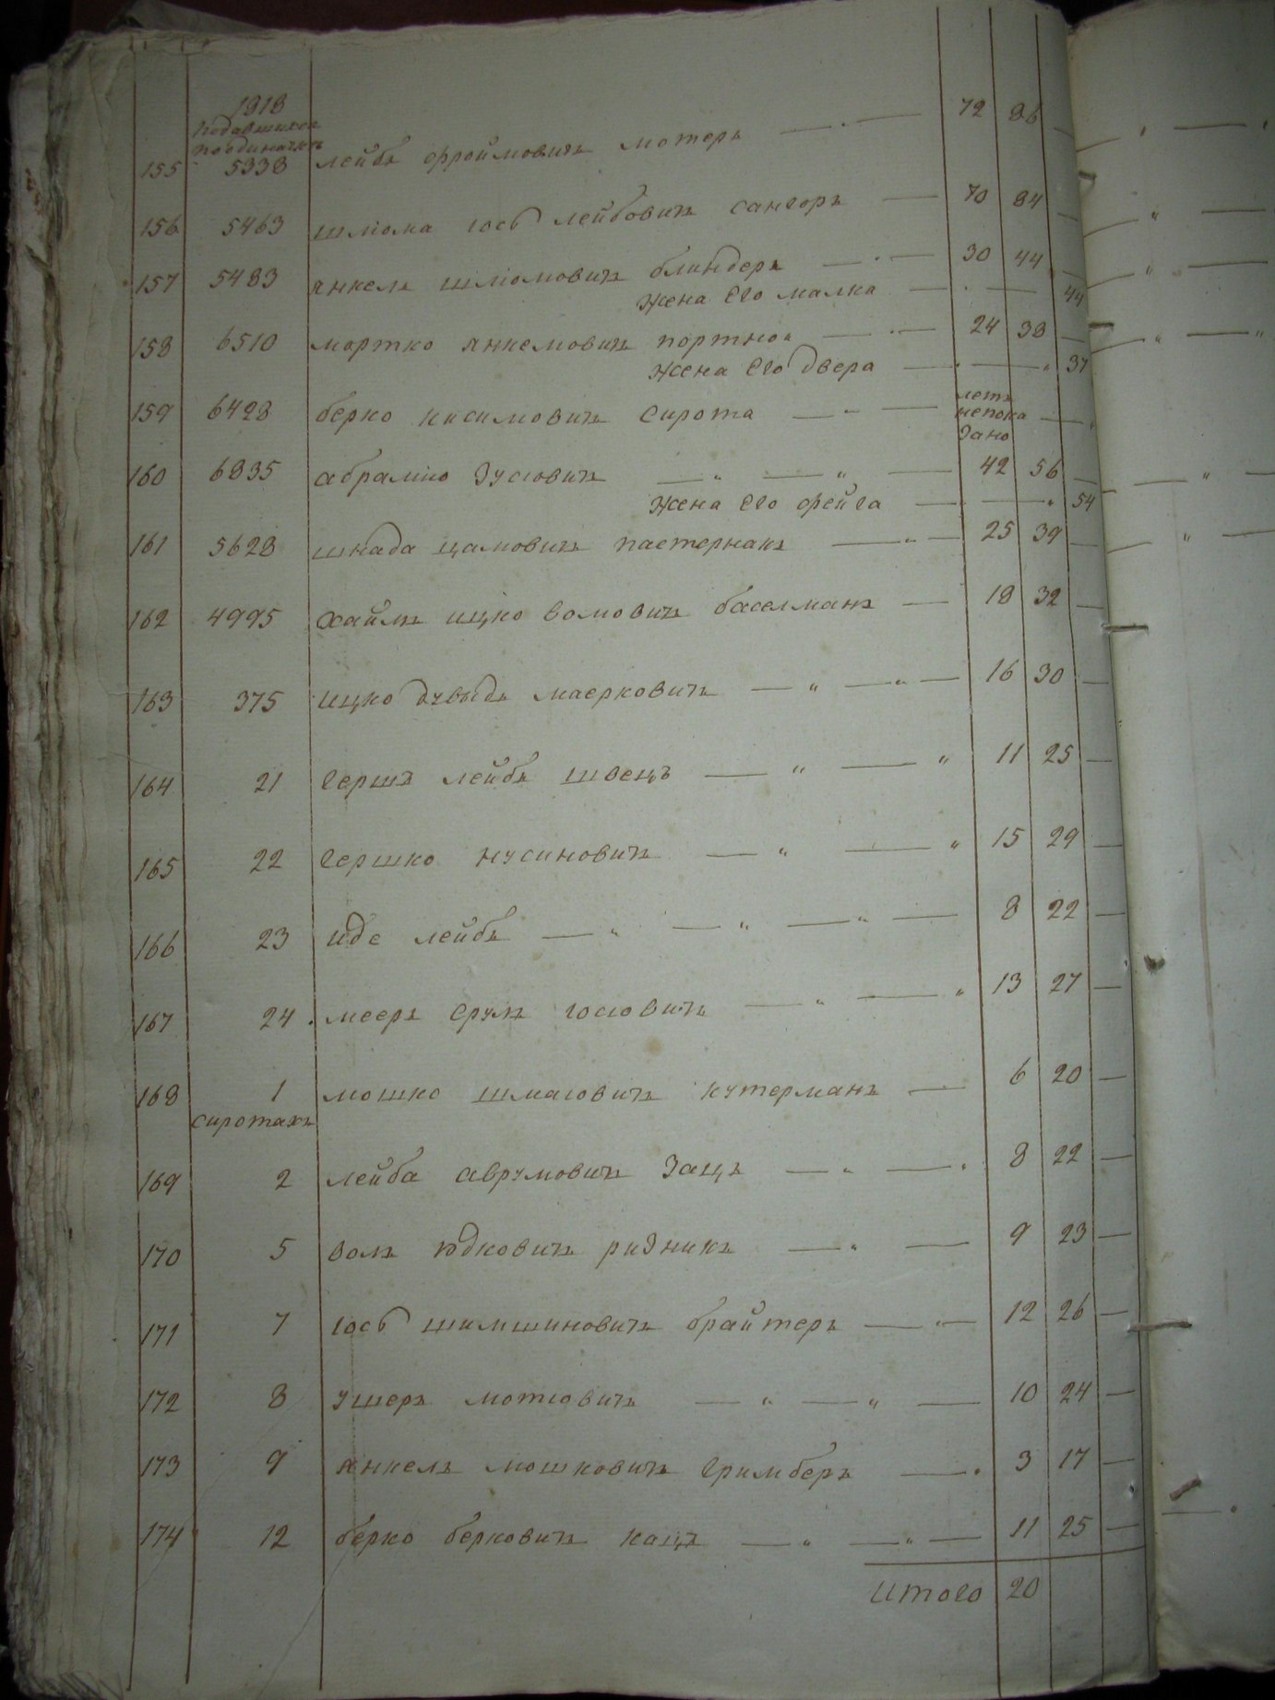 1818
подавшихся
поодиначке
155 5338 лейба фроймовичъ мотеръ 72 86
156 5463 шлiома иосб лейбовичъ сангоръ 70 84
157 5483 янкель шлiомовичъ блиндеръ 30 44
жена его малка 44
158 6510 мортко янкемовичъ портной 24 38
жена его двера 37
159 6428 берко нисимовичъ сирота летъ
непока
зано
160 6835 абрамко зусiовичъ 42 56
жена его фейга 54
161 5628 шнада цамовичъ пастернакъ 25 39
162 4995 хаимъ ицко волмовичъ баселманъ 18 32
163 375 ицко дувыдъ маерковичъ 16 30
164 21 гершъ лейба швецъ 11 25
165 22 гершко нусиновичъ 15 29
166 23 иде лейба 8 22
167 24 мееръ срулъ иосiовичъ 13 27
168 1 мошко шмаговичъ кутерманъ 6 20
сиротахъ
169 2 лейба аврумовичъ зацъ 8 22
170 5 волъ юдковичъ ризникъ 9 23
171 7 iосб шимшиновичъ брайтеръ 12 26
172 8 ушеръ мотiовичъ 10 24
173 9 янкель мошковичъ гримберъ 3 17
174 12 берко берковичъ кацъ 11 25
итого 20